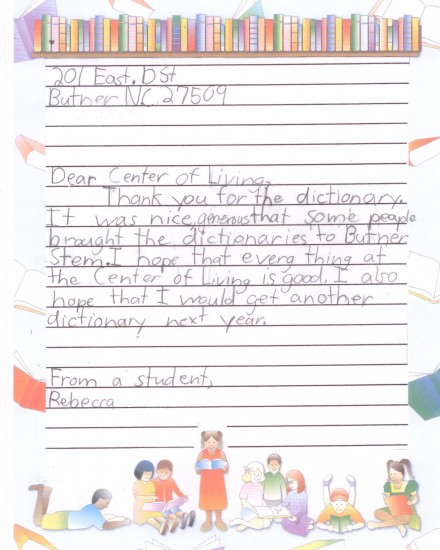 201 East. D St
Butner NC 27509
Dear Center of Living,
Thank you for the dictionary.
It was nice, generous that some people
brought the dictionaries to Butner
Stem. I hope that every thing at
the Center of Living is good. I also
hope that I would get another
dictionary next year.
From a student,
Rebecca